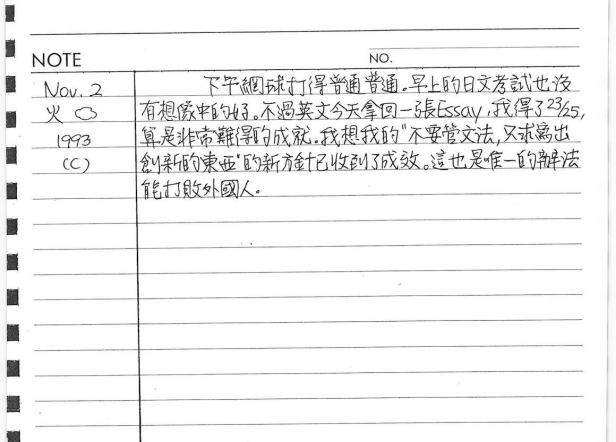 NOTE
NO.
Nov. 2
火
1993
(C)
下午網球打得普通普通。早上的日文考試也沒
有想像中的好。不過英文今天拿回一張Essay,我得了23/25,
算是非常難得的成就。我想我的"不要管文法,只求寫出
創新的東西"的新方針已收到了成效。這也是唯一的辦法
能打敗外國人。